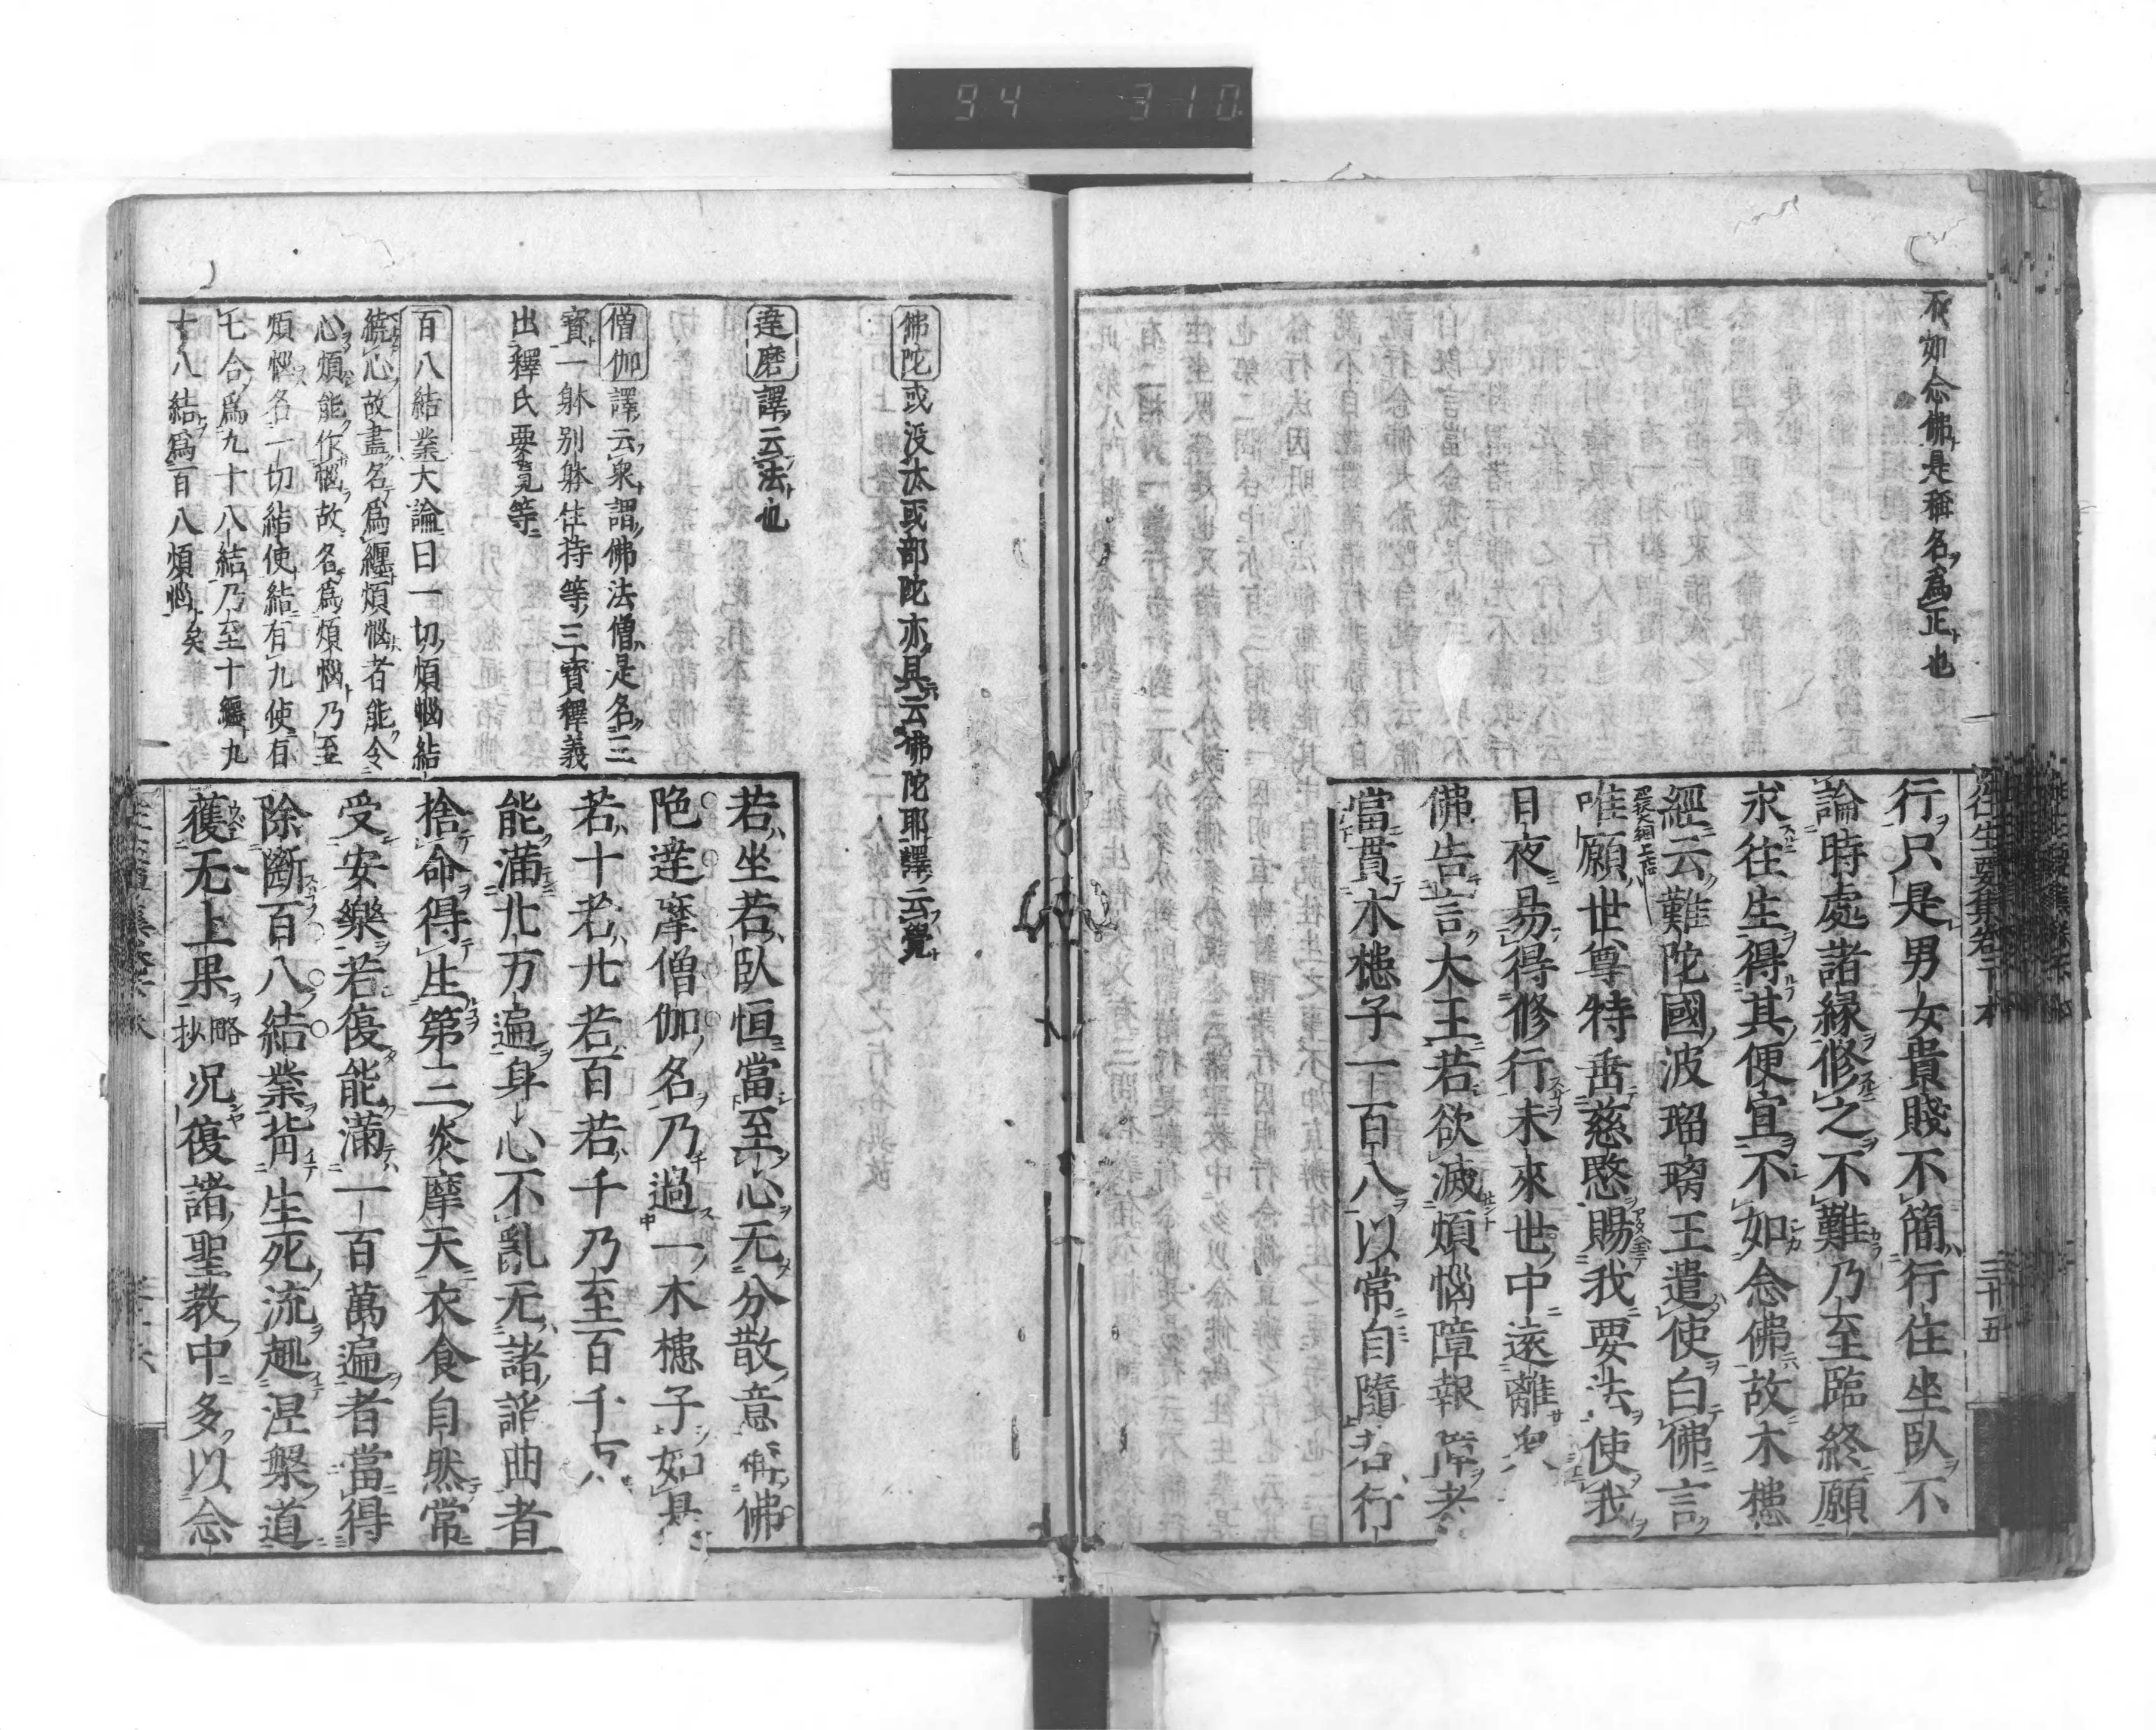 94 310
不如念佛是稱名爲正也
往生要集卷下本
三十五
行只是男女貴賤不簡行住坐臥不
論時處諸縁修之不難乃至臨終願
求往生得其便宜不如念佛故木槵
經云難陀國波瑠璃王遣使白佛言
唯願世尊特垂慈愍賜我要法使我
日夜易得修行未來世中遠離
佛告言大王若欲滅煩惱障報障者
當貫木槵子一百八以常自隨若行
佛陀或没汰或部陀亦具云佛陀耶譯云覺
達磨譯云法也
僧伽譯云衆謂佛法僧是名三
寳一躰別躰住持等三寳釋義
出釋氏要覽等
百八結業大論曰一切煩惱結
繞心故盡名爲纏煩惱者能令
心煩能作惱故名爲煩惱乃至
煩惱名一切結使結有九使有
七合爲九十八結乃至十纏九
十八結爲百八煩惱矣
若坐若臥恒當至心无分散意稱佛
陁達摩僧伽名乃過一木槵子如是
若十若廿若百若千乃至百千万
能滿廿万遍身心不亂无諸諂曲者
捨命得生第三炎摩天衣食自然常
受安樂若復能滿一百萬遍者當得
除斷百八結業背生死流趣涅槃道
獲无上果略抄況復諸聖教中多以念